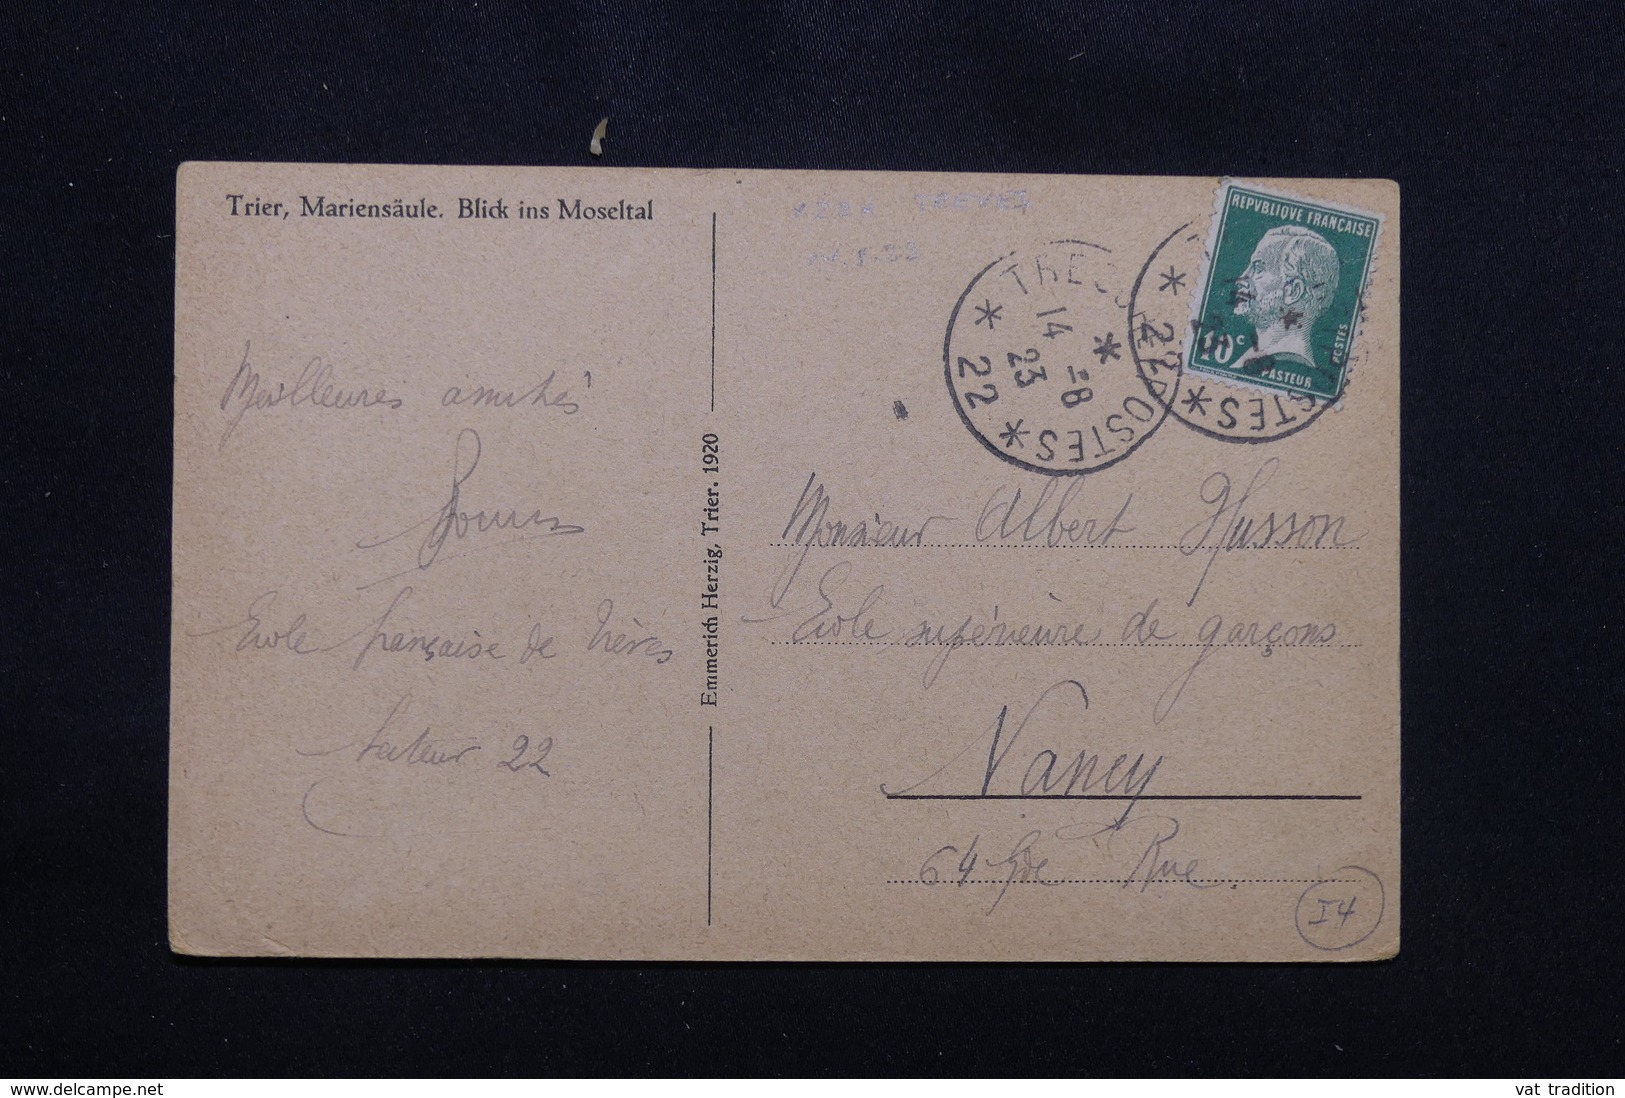 Trier, Mariensäule. Blick ins Moseltal
Meilleures amitiés
Ecole française de Trèves
Secteur 22
Emmerich Herzig, Trier. 1920
TRESOR ET POSTES
* 22 *
14 -8
23
* 22 *
REPVBLIQUE FRANÇAISE
POSTES
10 c
PASTEUR
Monsieur Albert Husson
Ecole supérieure de garçons
Nancy
64 Gde Rue.
I4
www.delcampe.net
vat tradition